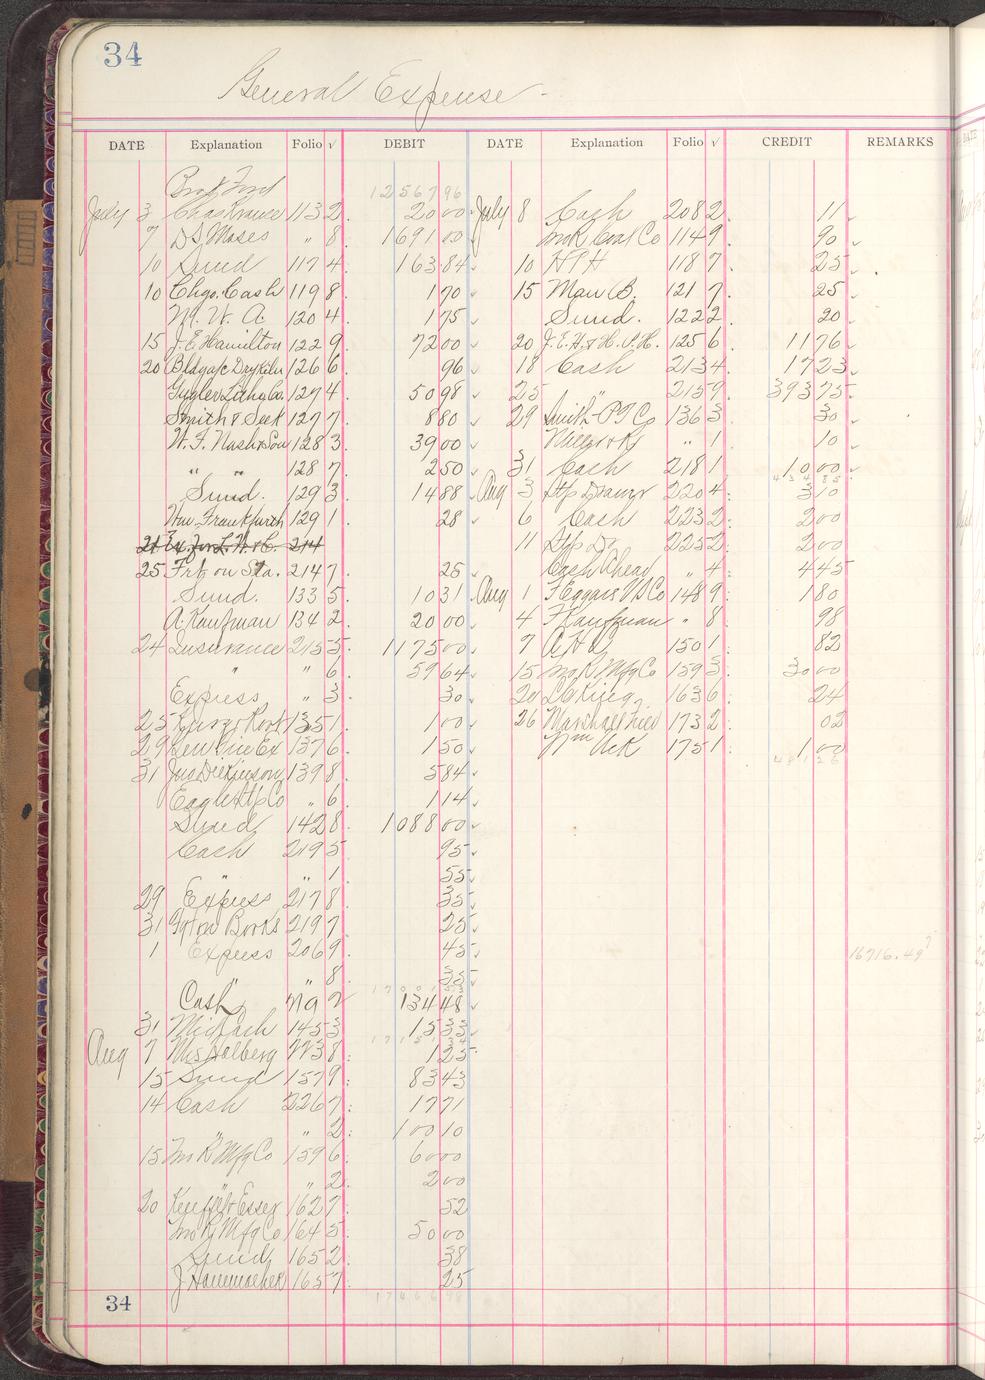 34
General Expense -
DATE Explanation Folio √ DEBIT DATE Explanation Folio √ CREDIT REMARKS
Brot Ford 12567 96
July 3 Chas Krause 113 2 20 00 July 8 Cash 208 2 11
7 D S Moses " 8 1691 00 Jno R. Coal Co 114 9 90
10 Sund 117 4 163 84 10 H P H 118 7 25
10 Chgo. Cash 119 8 1 70 15 Man B. 121 7 25
M. W. A. 120 4 1 75 Sund. 122 2 20
15 J. E. Hamilton 122 9 72 00 20 J. E. H. & H. P. H. 125 6 11 76
20 Bldg a/c Dry Kiln 126 6 96 18 Cash 213 4 17 23
Gugler Litho Co. 127 4 50 98 25 " 215 9 393 75
Smith & Seek 127 7 8 80 29 Smith- P T Co 136 3 30
W. F. Nash & Son 128 3 39 00 " 1 10
" " 128 7 2 50 31 Cash 218 1 10 00
Sund. 129 3 14 88 Aug 3 Stp Drawer 220 4 3 10
Wm. Frankfurth 129 1 28 6 Cash 223 2 2 00
21 Ex. for L. W. & C. 214 11 Stp Dr 225 2 2 00
25 Frt on Sta. 214 7 25 Cash Ahead " 4 4 45
Sund. 133 5 10 31 Aug 1 F Eggers V S Co 148 9 1 80
A. Kaufman 134 2 20 00 4 F Kaufman " 8 98
24 Insurance 215 5 1175 00 7 A H 150 1 82
" " 6 59 64 15 Jno R Mfg Co 159 3 30 00
Express " 3 30 20 163 6 24
25 135 1 1 00 26 Marshall 173 2 02
29 Ex 137 6 1 50 Wm 175 1 1 00
31 Jas Dickinson 139 8 5 84
Eagle Co " 6 1 14
Sund 142 8 1088 00
Cash 219 5 95
" " 1 55
29 Express 217 8 35
31 Books 219 7 25
1 Express 206 9 45 16716.49
" 8 35
Cash 2 134 48
31 Cash 145 3 15 33
Aug 7 8 1 25
15 Sund 157 9 83 43
14 Cash 226 7 17 71
" " 2 100 10
15 Jno R Mfg Co 159 6 60 00
" " 2 2 00
20 Keuffel & Esser 162 7 52
Jno R Mfg Co 164 5 50 00
Sund 165 2 38
J 165 7 25
17666 98
34